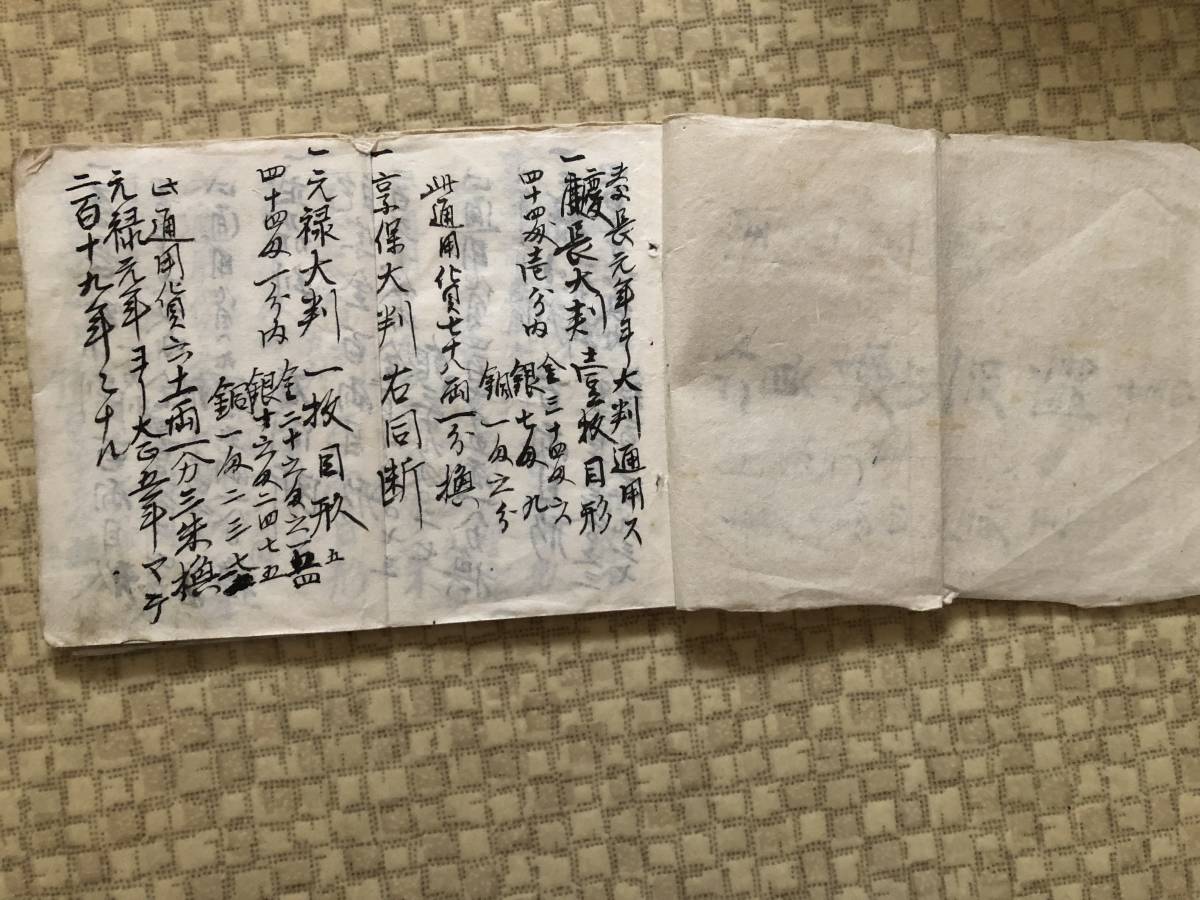 慶長元年ヨリ大判通用ス
一慶長大判壹枚目形
四十四匁壱分内
金三十四匁六
銀七匁九
銅一匁六分
此通用貨七十八両一分換
一享保大判右同断
一元禄大判一枚目形
四十四匁一分内
金二十六匁六一五四
銀十六匁二四七五
銅一匁二三七
此通用貨六十両一分三朱換
元禄元年ヨリ大正五年マテ
二百十九年